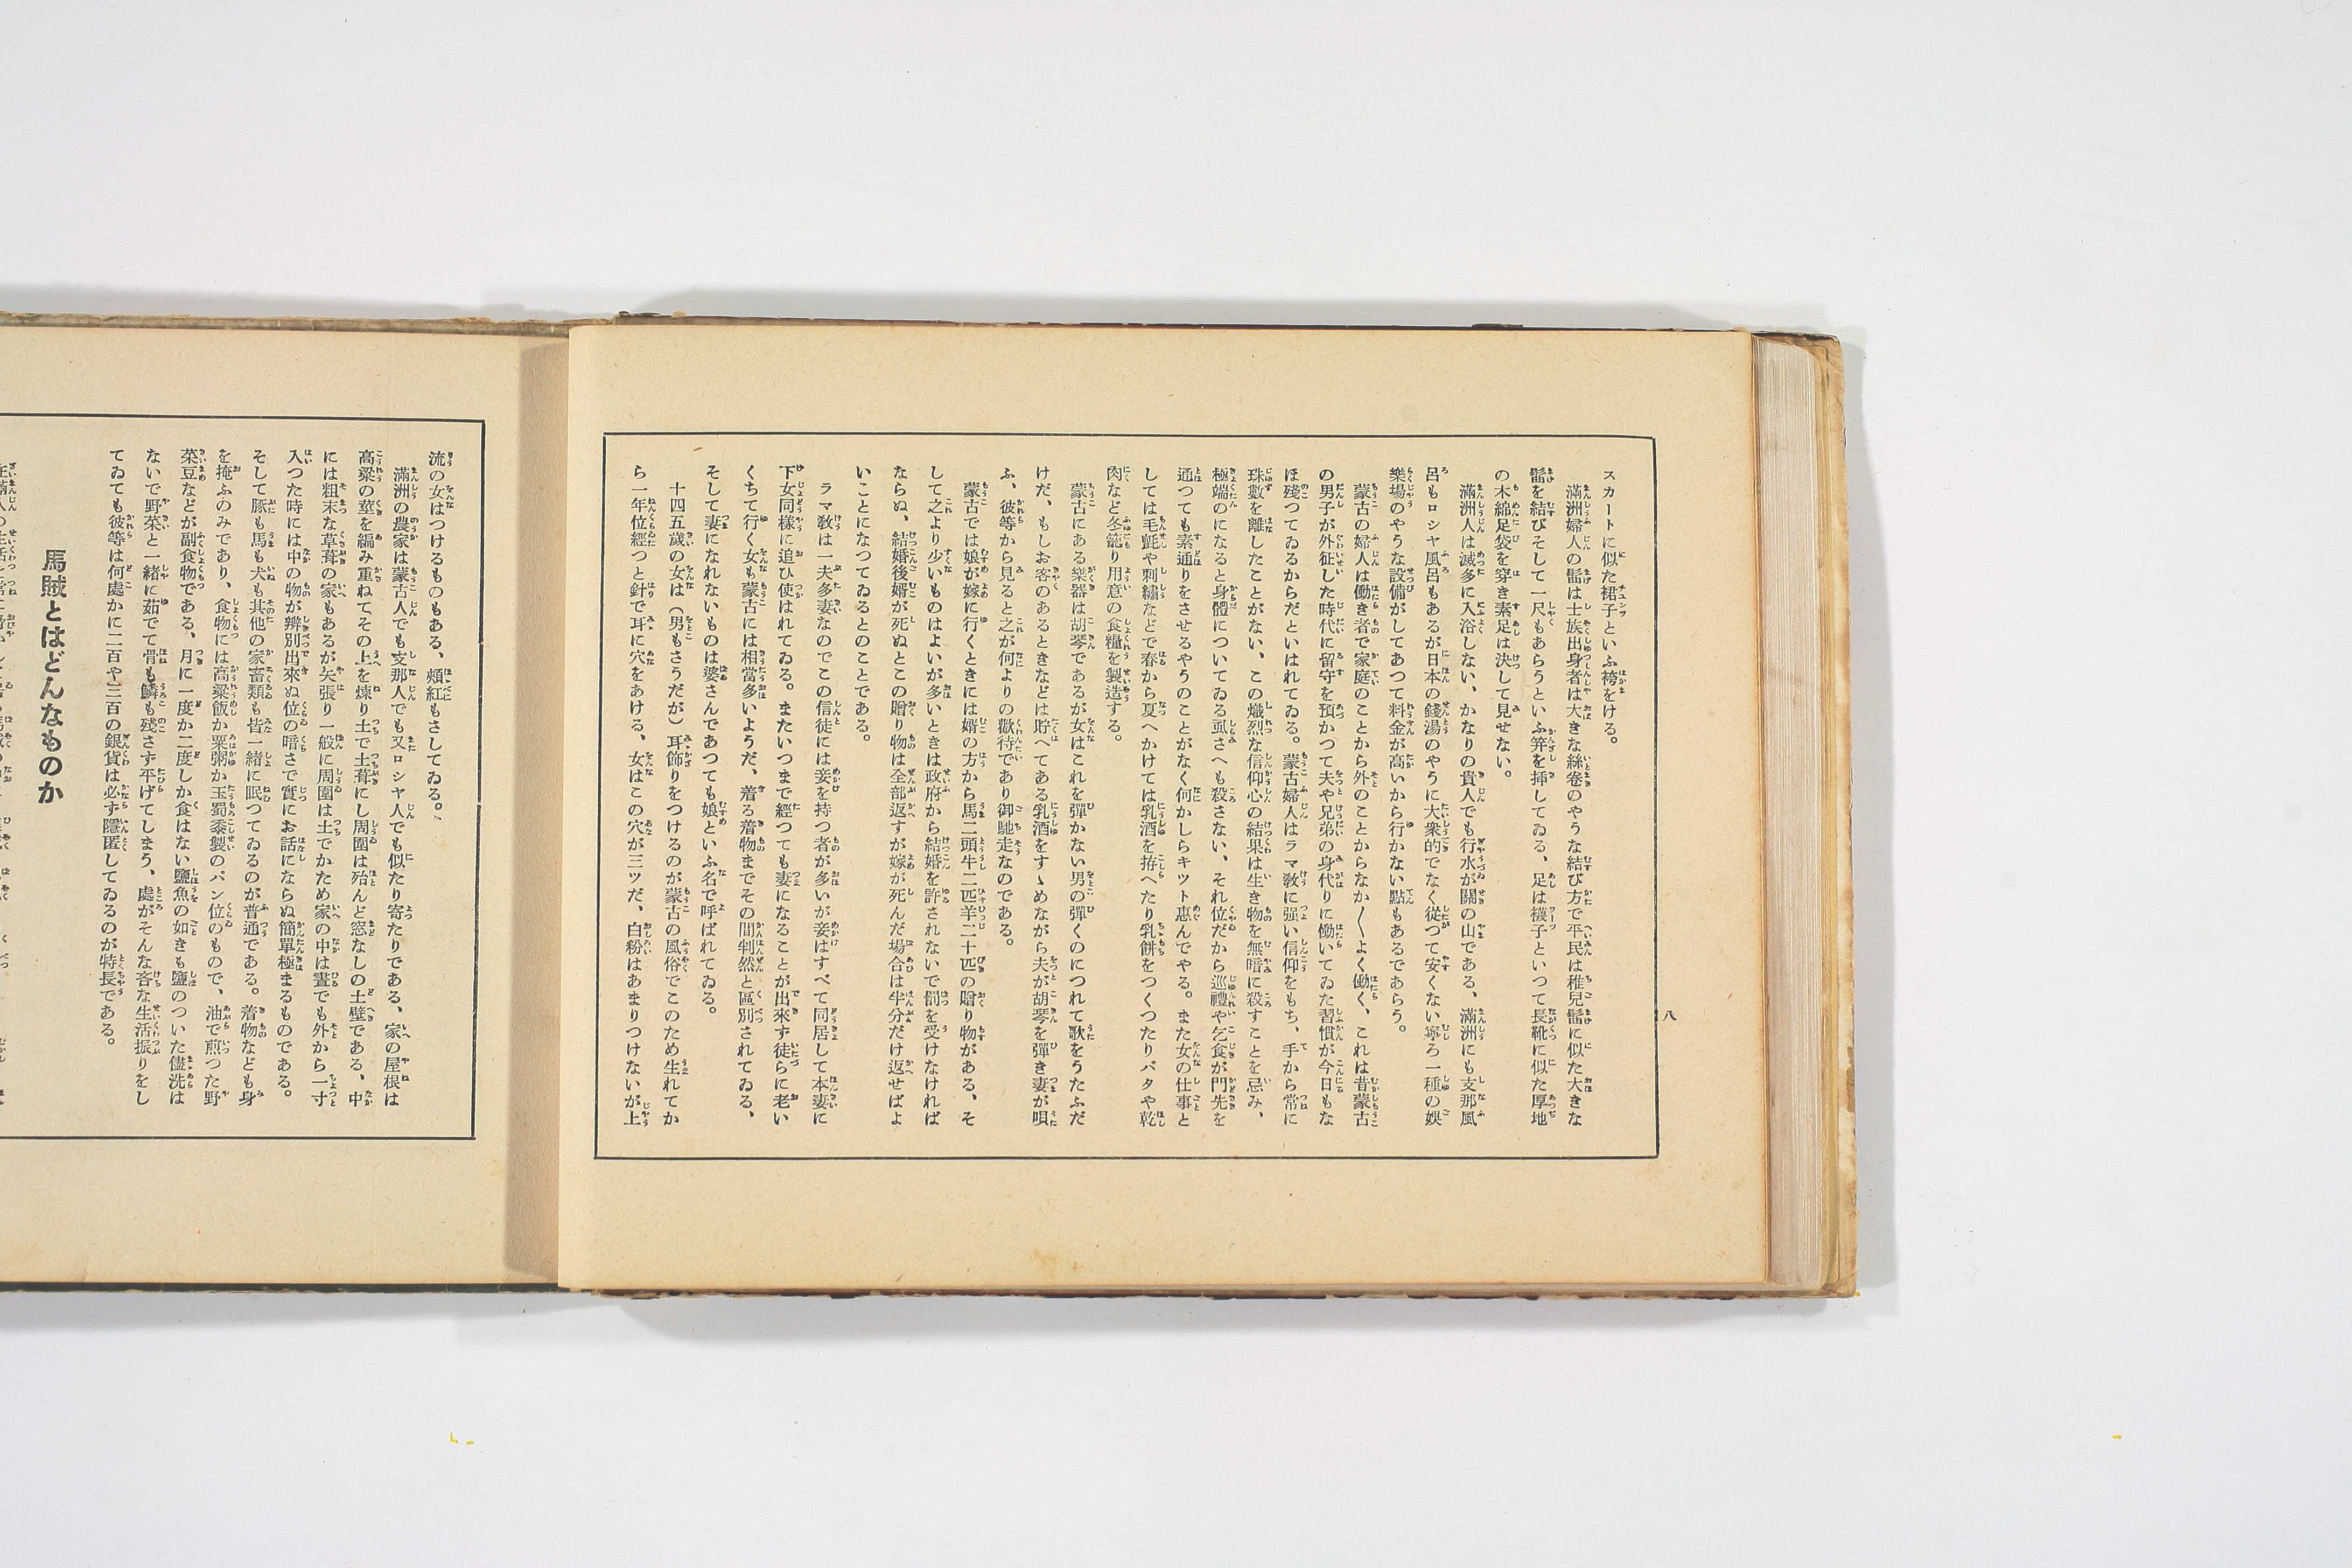 八
スカートに似た裙子といふ袴をける。
滿洲婦人の髷は士族出身者は大きな絲卷のやうな結び方で平民は稚兒髷に似た大きな
髷を結びそして一尺もあらうといふ笄を挿してゐる、足は襪子といつて長靴に似た厚地
の木綿足袋を穿き素足は決して見せない。
滿洲人は滅多に入浴しない、かなりの貴人でも行水が關の山である、滿洲にも支那風
呂もロシヤ風呂もあるが日本の錢湯のやうに大衆的でなく從つて安くない寧ろ一種の娛
樂場のやうな設備がしてあつて料金が高いから行かない點もあるであらう。
蒙古の婦人は働き者で家庭のことから外のことからなか〱よく働く、これは昔蒙古
の男子が外征した時代に留守を預かつて夫や兄弟の身代りに働いてゐた習慣が今日もな
ほ殘つてゐるからだといはれてゐる。蒙古婦人はラマ敎に强い信仰をもち、手から常に
珠數を離したことがない、この熾烈な信仰心の結果は生き物を無暗に殺すことを忌み、
極端のになると身體についてゐる虱さへも殺さない、それ位だから巡禮や乞食が門先を
通つても素通りをさせるやうのことがなく何かしらキツト惠んでやる。また女の仕事と
しては毛氈や刺繡などで春から夏へかけては乳酒を拵へたり乳餅をつくつたりバタや乾
肉など冬籠り用意の食糧を製造する。
蒙古にある樂器は胡琴であるが女はこれを彈かない男の彈くのにつれて歌をうたふだ
けだ、もしお客のあるときなどは貯へてある乳酒をすゝめながら夫が胡琴を彈き妻が唄
ふ、彼等から見ると之が何よりの歡待であり御馳走なのである。
蒙古では娘が嫁に行くときには婿の方から馬二頭牛二匹羊二十匹の贈り物がある、そ
して之より少いものはよいが多いときは政府から結婚を許されないで罰を受けなければ
ならぬ、結婚後婿が死ぬとこの贈り物は全部返すが嫁が死んだ場合は半分だけ返せばよ
いことになつてゐるとのことである。
ラマ敎は一夫多妻なのでこの信徒には妾を持つ者が多いが妾はすべて同居して本妻に
下女同樣に追ひ使はれてゐる。またいつまで經つても妻になることが出來ず徒らに老い
くちて行く女も蒙古には相當多いようだ、着る着物までその間判然と區別されてゐる、
そして妻になれないものは婆さんであつても娘といふ名で呼ばれてゐる。
十四五歲の女は（男もさうだが）耳飾りをつけるのが蒙古の風俗でこのため生れてか
ら一年位經つと針で耳に穴をあける、女はこの穴が三ツだ、白粉はあまりつけないが上
流の女はつけるものもある、頰紅もさしてゐる。
滿洲の農家は蒙古人でも支那人でも又ロシヤ人でも似たり寄たりである、家の屋根は
高粱の莖を編み重ねてその上を煉り土で土葺にし周圍は殆んど窓なしの土壁である、中
には粗末な草葺の家もあるが矢張り一般に周圍は土でかため家の中は晝でも外から一寸
入つた時には中の物が辨別出來ぬ位の暗さで實にお話にならぬ簡單極まるものである。
そして豚も馬も犬も其他の家畜類も皆一緖に眠つてゐるのが普通である。着物なども身
を掩ふのみであり、食物には高粱飯か粟粥か玉蜀黍製のパン位のもので、油で煎つた野
菜豆などが副食物である、月に一度か二度しか食はない鹽魚の如きも鹽のついた儘洗は
ないで野菜と一緖に茹でて骨も鱗も殘さず平げてしまう、處がそんな吝な生活振りをし
てゐても彼等は何處かに二百や三百の銀貨は必ず隱匿してゐるのが特長である。
馬賊とはどんなものか